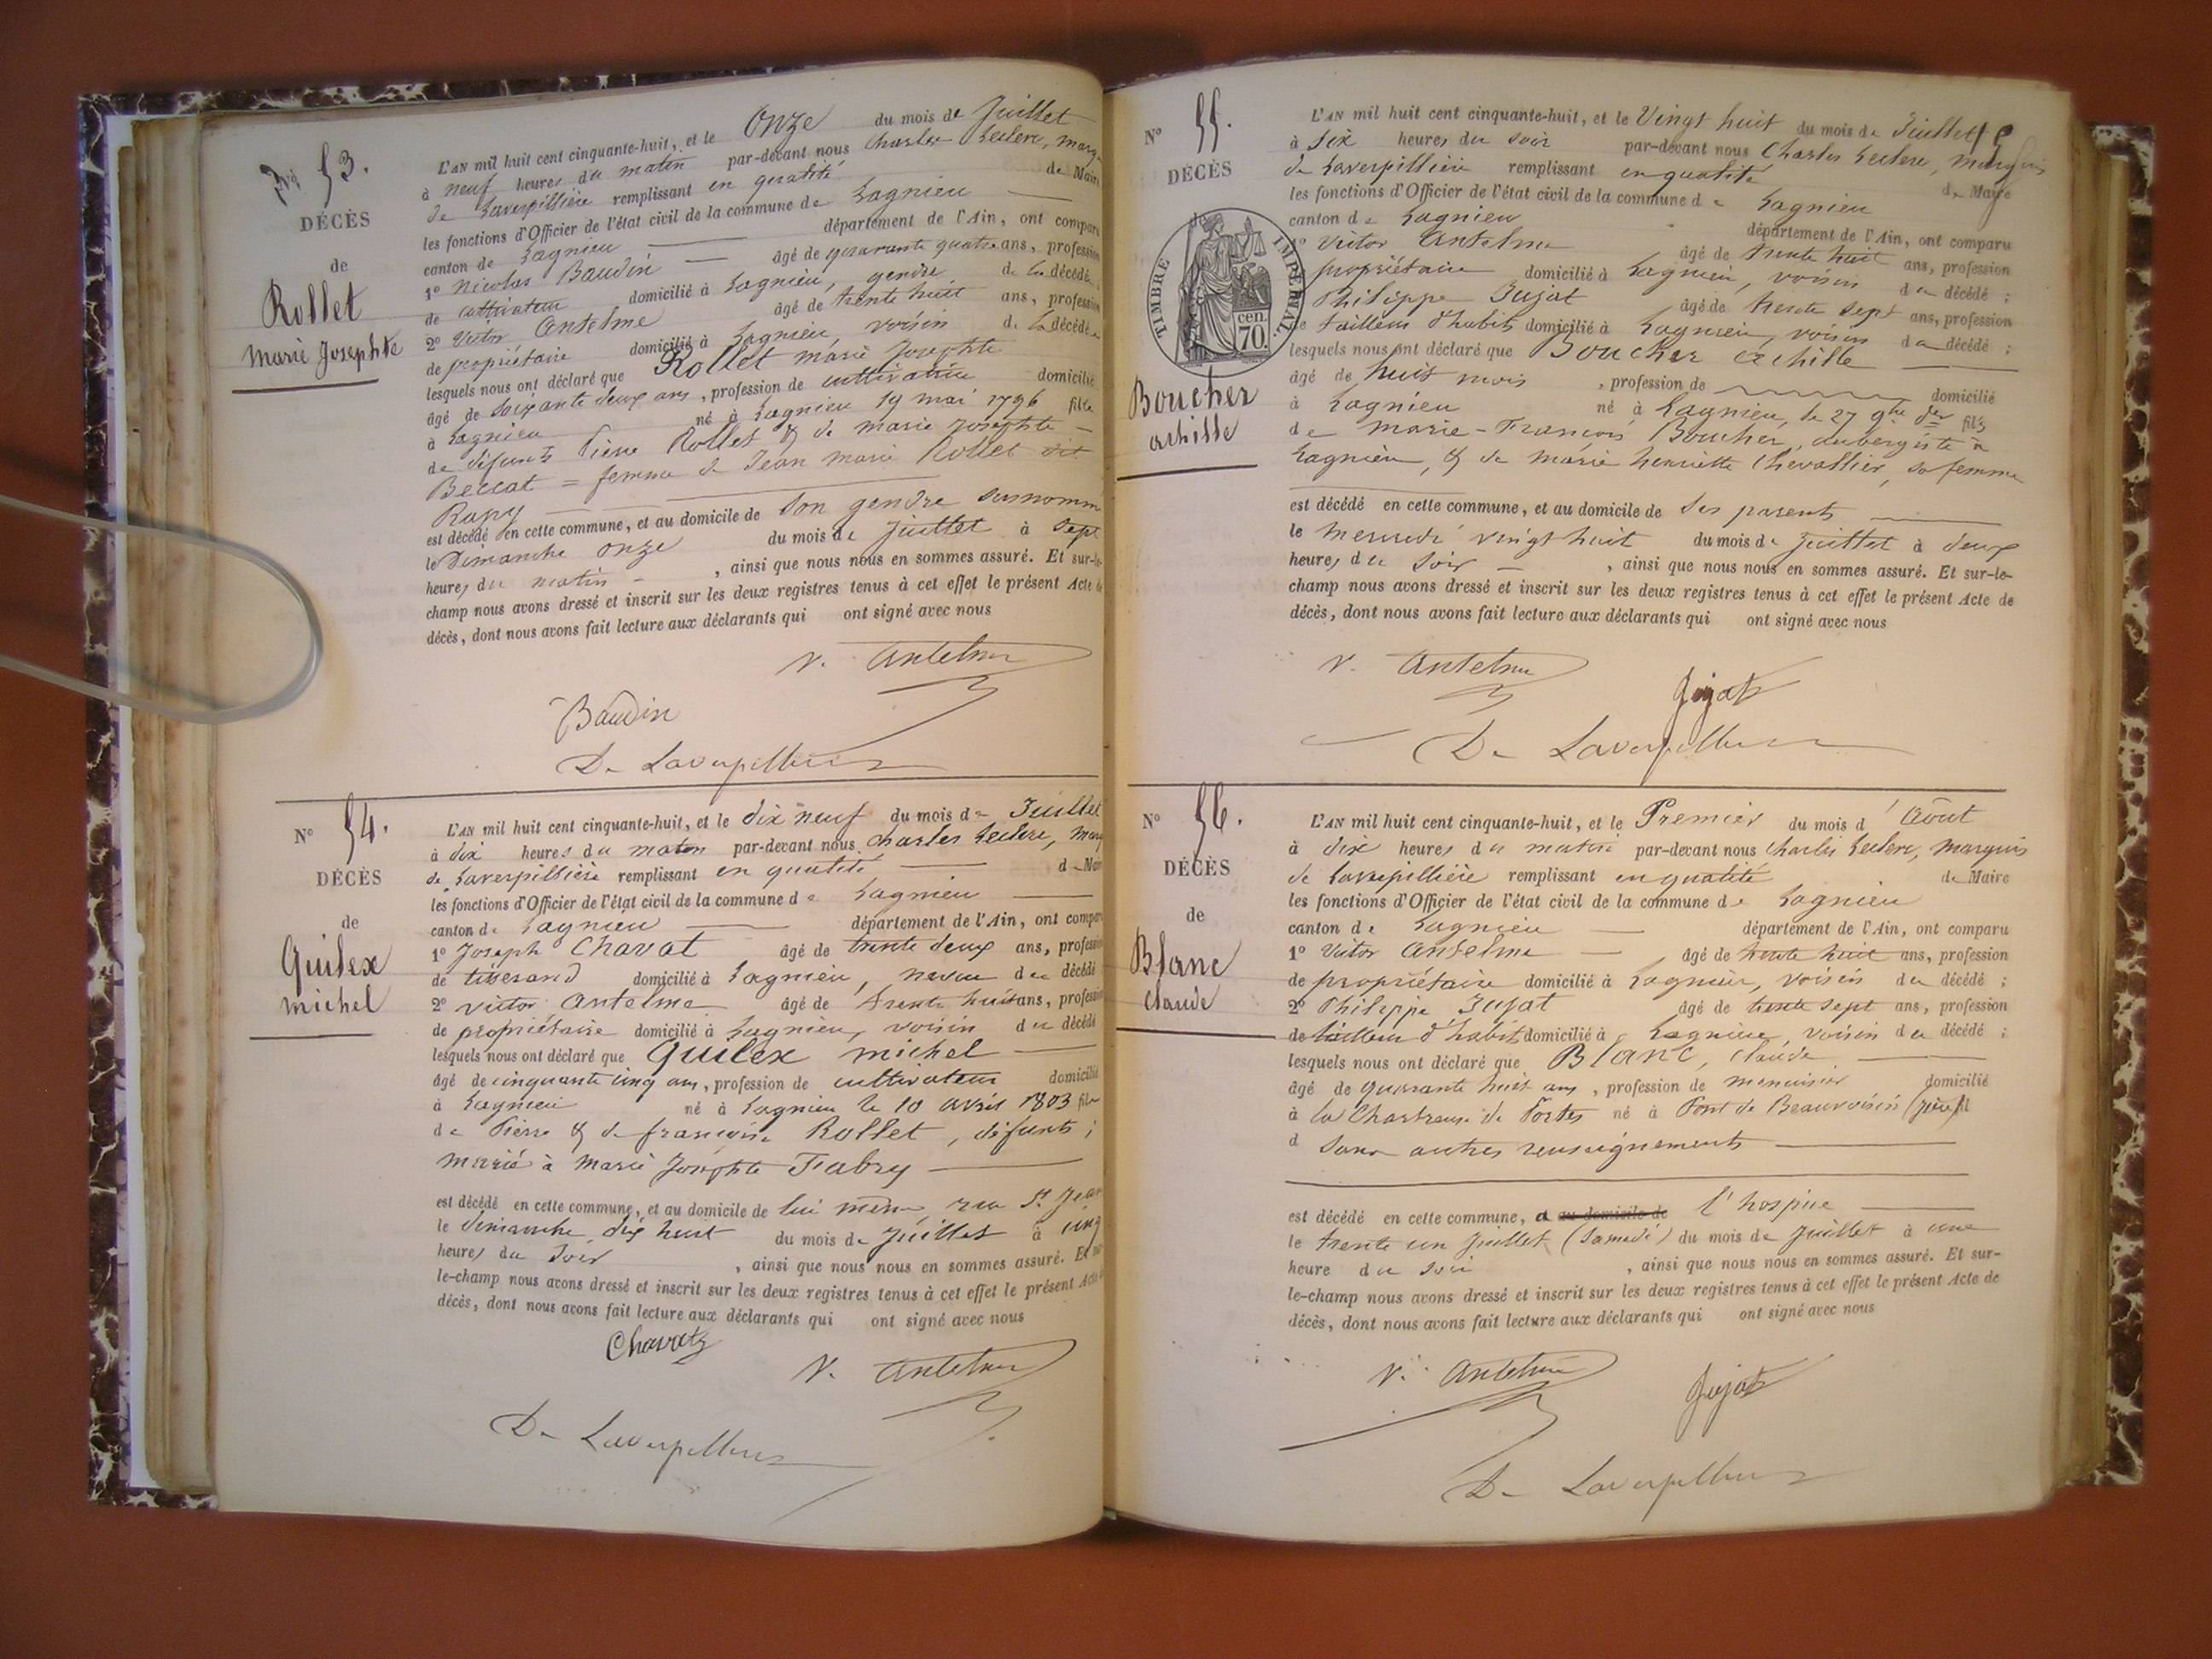 No 53.
DÉCÈS
de
Rollet
Marie Josephte
L'AN mil huit cent cinquante-huit, et le Onze du mois de Juillet
à neuf heures du matin par-devant nous Charles Leclerc, marq
de Laverpillière remplissant en qualité de Maire
les fonctions d'Officier de l'état civil de la commune de Lagnieu
canton de Lagnieu département de l'Ain, ont comparu
1o Nicolas Baudin âgé de quarante quatre ans, profession
de cultivateur domicilié à Lagnieu, gendre de la décédée
2o Victor Antelme âgé de trente huit ans, profession
de propriétaire domicilié à Lagnieu, voisin de la décédée
lesquels nous ont déclaré que Rollet marie Josephte
âgé de soixante deux ans, profession de cultivatrice domicilié
à Lagnieu né à Lagnieu 19 mai 1796 fille
de défunts Pierre Rollet & de marie Josephte
Beccat = femme de Jean marie Rollet dit
Rapy
est décédé en cette commune, et au domicile de son gendre susnommé
le Dimanche onze du mois de Juillet à sept
heures du matin, ainsi que nous nous en sommes assuré. Et sur-le-
champ nous avons dressé et inscrit sur les deux registres tenus à cet effet le présent Acte de
décès, dont nous avons fait lecture aux déclarants qui ont signé avec nous
V. Antelme
Baudin
De Laverpilliere
No 54.
DÉCÈS
de
Guilex
michel
L'AN mil huit cent cinquante-huit, et le dix neuf du mois de Juillet
à dix heures du matin par-devant nous Charles Leclerc, marq
de Laverpillière remplissant en qualité de Maire
les fonctions d'Officier de l'état civil de la commune de Lagnieu
canton de Lagnieu département de l'Ain, ont comparu
1o Joseph Chavat âgé de trente deux ans, profession
de tisserand domicilié à Lagnieu, neveu du décédé
2o Victor Antelme âgé de trente huit ans, profession
de propriétaire domicilié à Lagnieu, voisin du décédé
lesquels nous ont déclaré que Guilex michel
âgé de cinquante cinq ans, profession de cultivateur domicilié
à Lagnieu né à Lagnieu le 10 avril 1803 fils
de Pierre & de françoise Rollet, défunts;
marié à Marie Josephte Fabry
est décédé en cette commune, et au domicile de lui même, rue St Jean
le dimanche dix huit du mois de Juillet à cinq
heures du soir, ainsi que nous nous en sommes assuré. Et sur-
le-champ nous avons dressé et inscrit sur les deux registres tenus à cet effet le présent Acte de
décès, dont nous avons fait lecture aux déclarants qui ont signé avec nous
V. Antelme
De Laverpilliere
No 55.
DÉCÈS
TIMBRE IMPÉRIAL
cen.
70.
Boucher
achille
L'AN mil huit cent cinquante-huit, et le Vingt huit du mois de Juillet
à six heures du soir par-devant nous Charles Leclerc, marquis
de Laverpillière remplissant en qualité de Maire
les fonctions d'Officier de l'état civil de la commune de Lagnieu
canton de Lagnieu département de l'Ain, ont comparu
1o Victor Antelme âgé de trente huit ans, profession
propriétaire domicilié à Lagnieu, voisin du décédé;
Philippe Jujat âgé de trente sept ans, profession
de tailleur d'habits domicilié à Lagnieu, voisin du décédé;
lesquels nous ont déclaré que Boucher achille
âgé de huit mois, profession de domicilié
à Lagnieu né à Lagnieu, le 27 9bre der fils
de marie-François Boucher, aubergiste à
Lagnieu, & de Marie henriette Chevallier, sa femme
est décédé en cette commune, et au domicile de ses parents
le mercredi vingt huit du mois de juillet à deux
heures du soir, ainsi que nous nous en sommes assuré. Et sur-le-
champ nous avons dressé et inscrit sur les deux registres tenus à cet effet le présent Acte de
décès, dont nous avons fait lecture aux déclarants qui ont signé avec nous
V. Antelme
Jujat
De Laverpilliere
No 56.
DÉCÈS
de
Blanc
Claude
L'AN mil huit cent cinquante-huit, et le Premier du mois d'Août
à dix heures du matin par-devant nous Charles Leclerc, marquis
de Laverpillière remplissant en qualité de Maire
les fonctions d'Officier de l'état civil de la commune de Lagnieu
canton de Lagnieu département de l'Ain, ont comparu
1o Victor Antelme âgé de trente huit ans, profession
de propriétaire domicilié à Lagnieu, voisin du décédé;
2o Philippe Jujat âgé de trente sept ans, profession
de tailleur d'habits domicilié à Lagnieu, voisin du décédé;
lesquels nous ont déclaré que Blanc, Claude
âgé de quarante huit ans, profession de menuisier domicilié
à la Chartreuse de Portes né à Pont de Beauvoisin (isère) fil
d sans autres renseignements
est décédé en cette commune, a au domicile de l'hospice
le trente un Juillet (samedi) du mois de Juillet à une
heure du soir, ainsi que nous nous en sommes assuré. Et sur-
le-champ nous avons dressé et inscrit sur les deux registres tenus à cet effet le présent Acte de
décès, dont nous avons fait lecture aux déclarants qui ont signé avec nous
V. Antelme
Jujat
De Laverpilliere